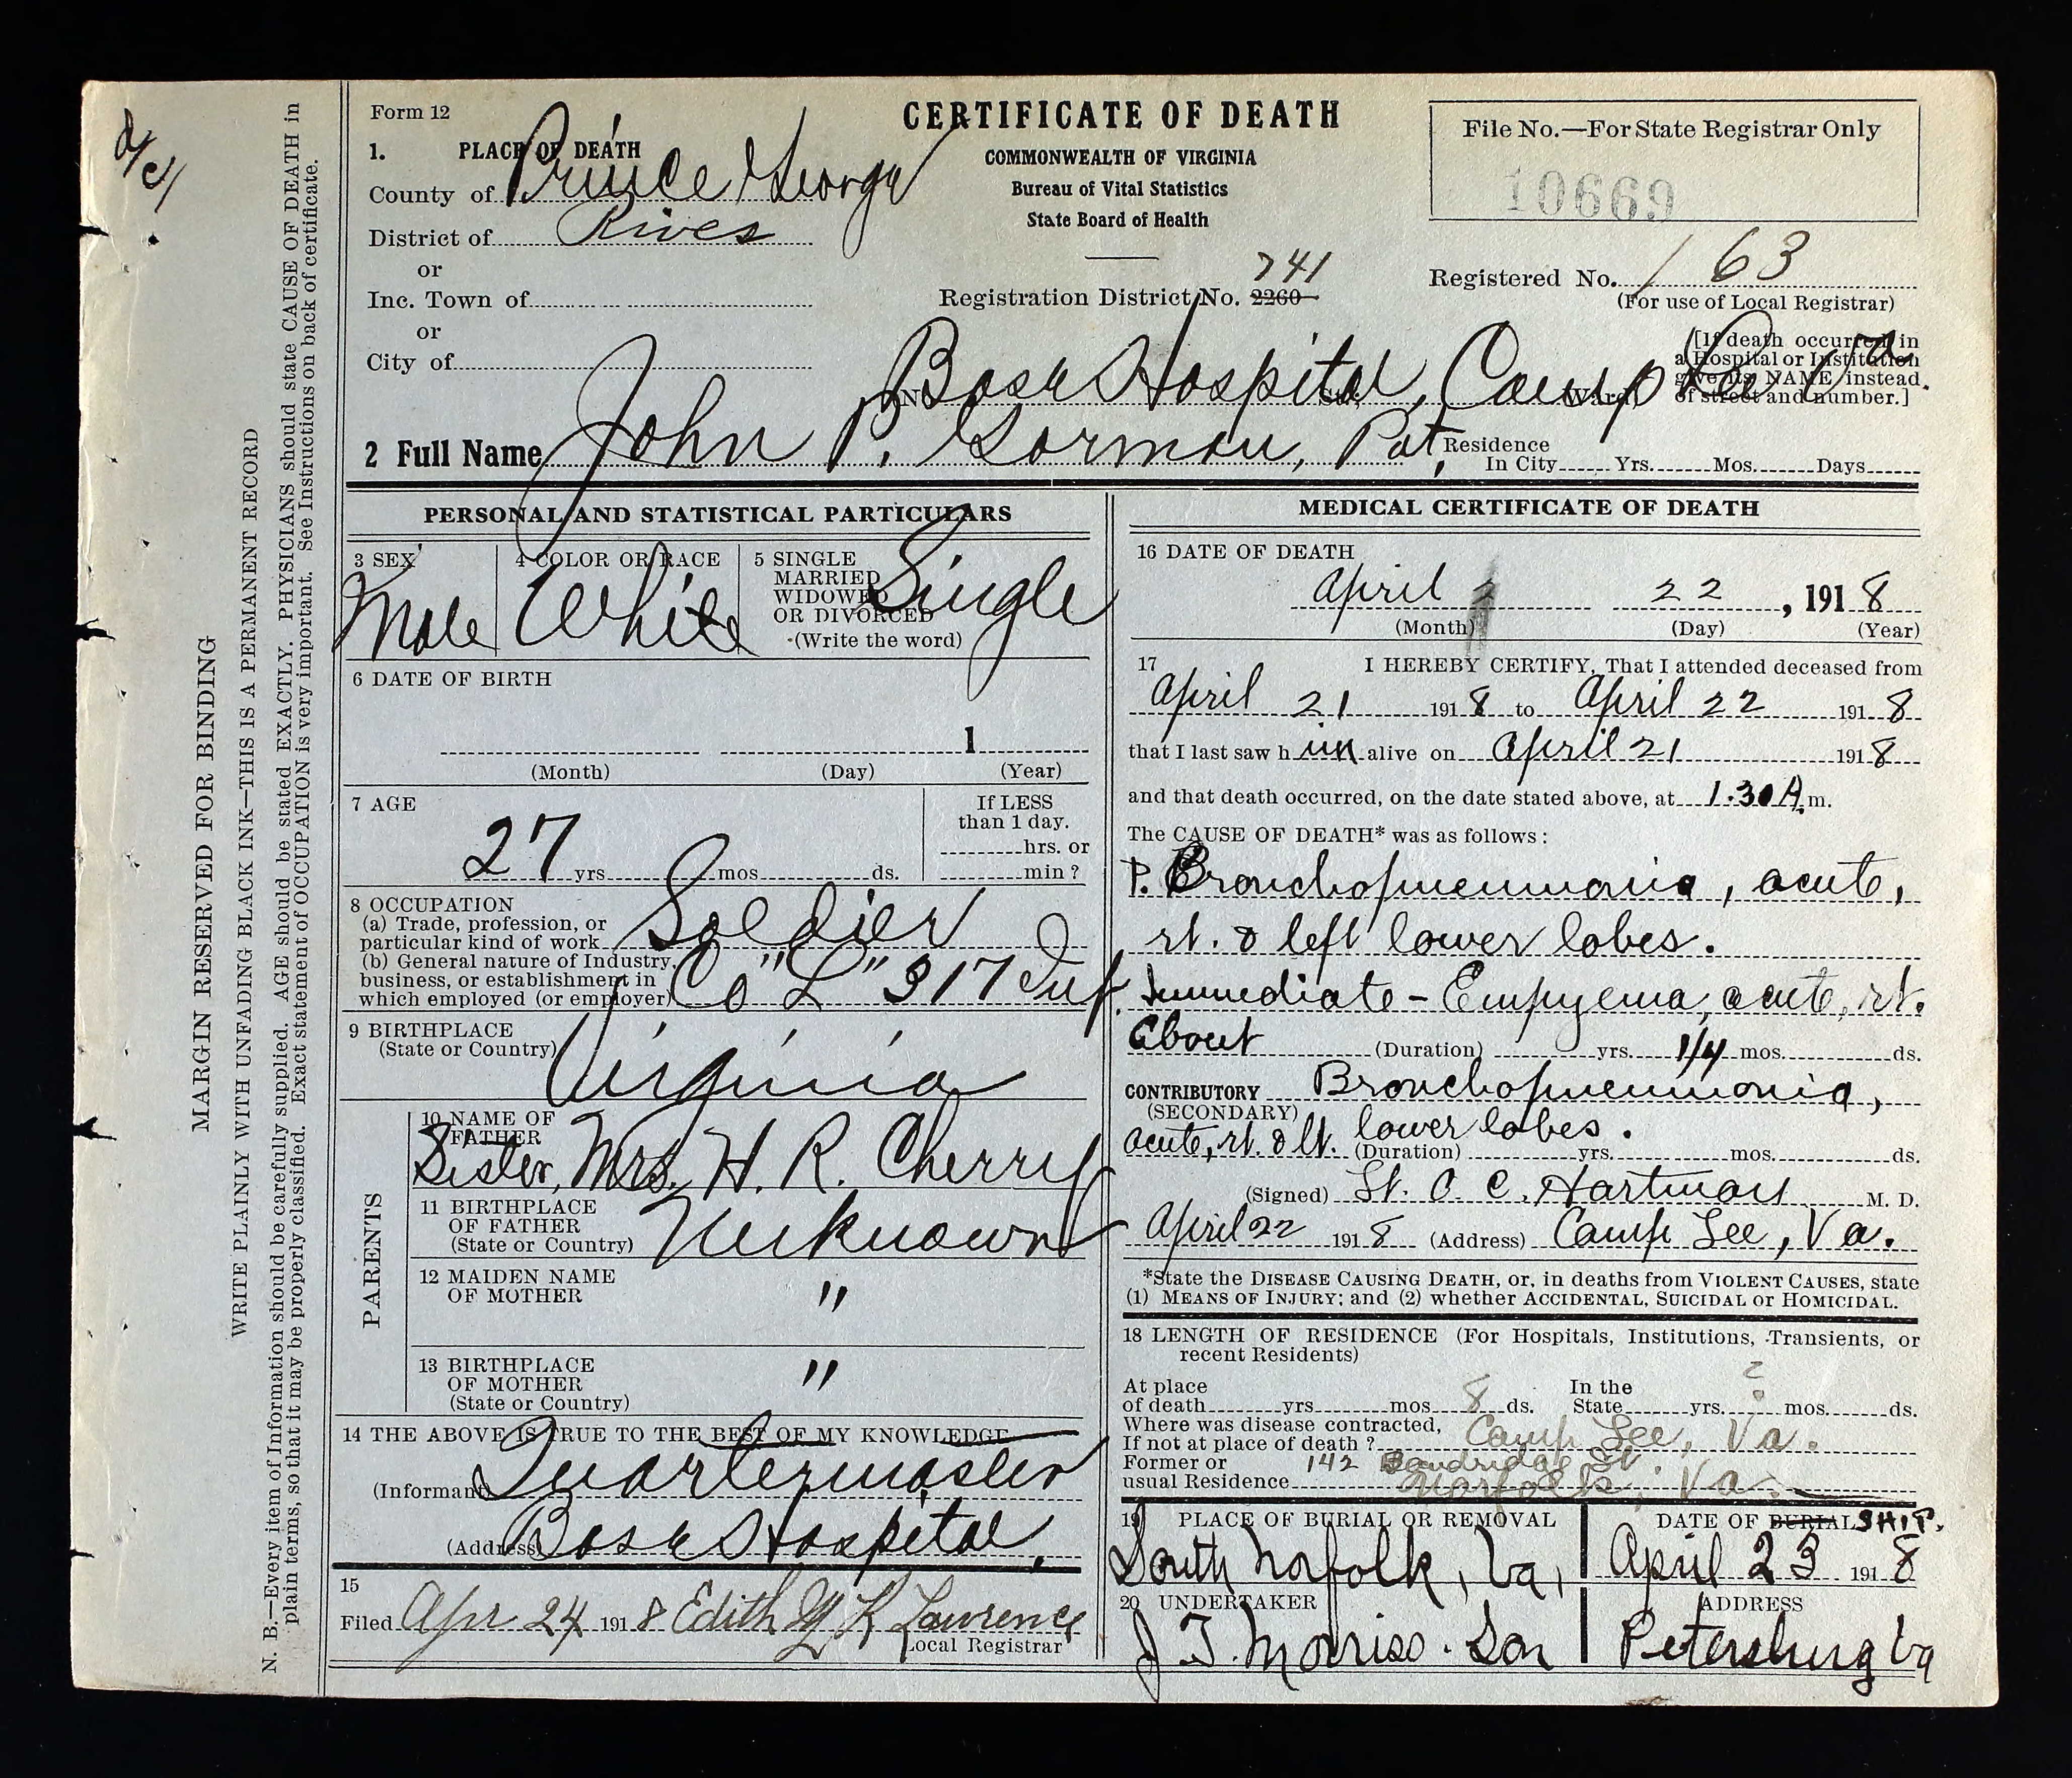 MARGIN RESERVED FOR BINDING
WRITE PLAINLY WITH UNFADING BLACK INK—THIS IS A PERMANENT RECORD
N. B.—Every item of Information should be carefully supplied. AGE should be stated EXACTLY. PHYSICIANS should state CAUSE OF DEATH in
plain terms, so that it may be properly classified. Exact statement of OCCUPATION is very important. See Instructions on back of certificate.
Form 12
CERTIFICATE OF DEATH
COMMONWEALTH OF VIRGINIA
Bureau of Vital Statistics
State Board of Health
File No.—For State Registrar Only
10669
1. PLACE OF DEATH
County of Prince George
District of Rives
or
Inc. Town of
or
City of
741
Registration District No. 2260
Registered No. 163
(For use of Local Registrar)
No. Base Hospital, St.; Camp Lee Va Ward
[If death occurred in
a Hospital or Institution
give its NAME instead
of street and number.]
2 Full Name John P. Gorman, Pvt,
Residence
In City Yrs. Mos. Days
PERSONAL AND STATISTICAL PARTICULARS
3 SEX
Male
4 COLOR OR RACE
White
5 SINGLE
MARRIED
WIDOWED
OR DIVORCED
(Write the word)
Single
6 DATE OF BIRTH
1
(Month) (Day) (Year)
7 AGE
27 yrs. mos. ds.
If LESS
than 1 day.
hrs. or
min ?
8 OCCUPATION
(a) Trade, profession, or
particular kind of work Soldier
(b) General nature of Industry,
business, or establishment in
which employed (or employer) Co "L" 317 Inf.
9 BIRTHPLACE
(State or Country) Virginia
PARENTS
10 NAME OF
FATHER
Sister, Mrs. H. R. Cherry
11 BIRTHPLACE
OF FATHER
(State or Country) Unknown
12 MAIDEN NAME
OF MOTHER "
13 BIRTHPLACE
OF MOTHER "
(State or Country)
14 THE ABOVE IS TRUE TO THE BEST OF MY KNOWLEDGE
(Informant) Quartermaster
(Address) Base Hospital,
15
Filed Apr 24 1918 Edith K Lawrence
Local Registrar
MEDICAL CERTIFICATE OF DEATH
16 DATE OF DEATH
April 22, 1918
(Month) (Day) (Year)
17 I HEREBY CERTIFY, That I attended deceased from
April 21 1918 to April 22 1918
that I last saw him alive on April 21 1918
and that death occurred, on the date stated above, at 1.30 A.m.
The CAUSE OF DEATH* was as follows:
P. Bronchopneumonia, acute,
rt. & left lower lobes.
Immediate - Empyema, acute, rt.
About (Duration) yrs. 1/4 mos. ds.
CONTRIBUTORY Bronchopneumonia,
(SECONDARY)
acute, rt. & lt. lower lobes.
(Duration) yrs. mos. ds.
(Signed) Lt. O. C. Hartman M. D.
April 22 1918 (Address) Camp Lee, Va.
*State the DISEASE CAUSING DEATH, or, in deaths from VIOLENT CAUSES, state
(1) MEANS OF INJURY; and (2) whether ACCIDENTAL, SUICIDAL or HOMICIDAL.
18 LENGTH OF RESIDENCE (For Hospitals, Institutions, Transients, or
recent Residents)
At place
of death yrs mos 8 ds.
In the
State yrs. ? mos. ds.
Where was disease contracted,
If not at place of death ? Camp Lee, Va.
Former or
usual Residence 142 St.
Norfolk, Va.
19 PLACE OF BURIAL OR REMOVAL
South Norfolk, Va,
DATE OF BURIAL SHIP.
April 23 1918
20 UNDERTAKER
J. T. Morriss. Son
ADDRESS
Petersburg Va